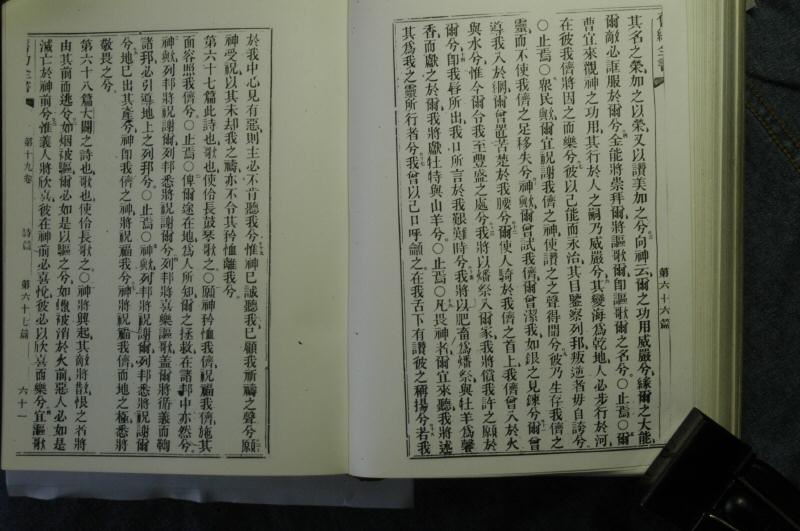 舊約全書
第六十六篇
其名之榮加之以榮又以讚美加之兮向神云爾之功用威嚴兮緣爾之大能
爾敵必誑服於爾兮全能將崇拜爾將謳歌爾卽謳歌爾之名兮○止焉○爾
曹宜來觀神之功用其行於人之嗣乃威嚴兮其變海爲乾地人必步行於河
在彼我儕將因之而樂兮彼以己能而永治其目鑒察列邦叛逆者毋自誇兮
○止焉○衆民歟爾宜祝謝我儕之神使讚之之聲得聞兮彼乃生存我儕之
靈而不使我儕之足移失兮神歟爾曾試我儕爾曾潔我如銀之見鍊兮爾曾
導我入於網爾曾置苦楚於我腰兮爾使人騎於我儕之首上我儕曾入於火
與水兮惟今爾令我至豐盛之處兮我將以燔祭入爾家我將償我許之願於
爾兮卽我唇所出我口所言於我艱難時兮我將以肥畜爲燔祭與牡羊爲馨
香而獻之於爾我將獻牡特與山羊兮○止焉○凡畏神者爾宜來聽我將述
其爲我之靈所行者兮我曾以己口呼籲之在我舌下有讚彼之稱揚兮若我
於我中心見有惡則主必不肯聽我兮惟神已誠聽我已顧我祈禱之聲兮願
神受祝以其未却我之禱亦不令其矜恤離我兮
第六十七篇此詩也歌也使伶長鼓琴歌之○願神矜恤我儕祝福我儕施其
面容照我儕兮○止焉○俾爾途在地爲人所知爾之拯救在諸邦中亦然兮
神歟列邦將祝謝爾列邦悉將祝謝爾兮列邦將喜樂謳歌蓋爾將循義而鞫
諸邦必引導地上之列邦兮○止焉○神歟列邦將祝謝爾列邦悉將祝謝爾
兮地已出其產兮神卽我儕之神將祝福我兮神將祝福我儕而地之極悉將
敬畏之兮
第六十八篇大闢之詩也歌也使伶長歌之○神將興起其敵將散恨之者將
由其前而逃兮如烟被驅爾必如是以驅之兮如蠟被消於火前惡人必如是
滅亡於神前兮惟義人將欣喜彼在神前必喜悅彼必以欣喜而樂兮宜謳歌
第十九卷
詩篇
第六十七篇
六十一